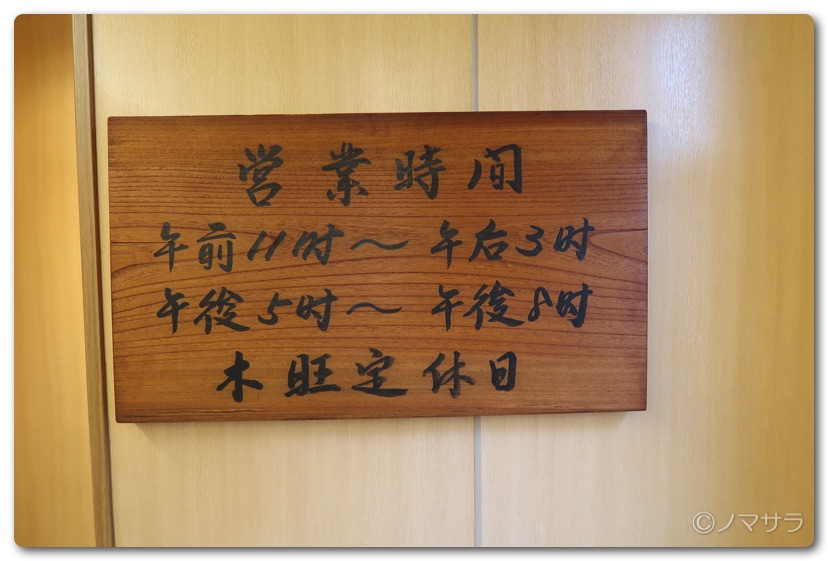 営業時間
午前11时～午后3时
午後5时～午後8时
木旺定休日
©ノマサラ